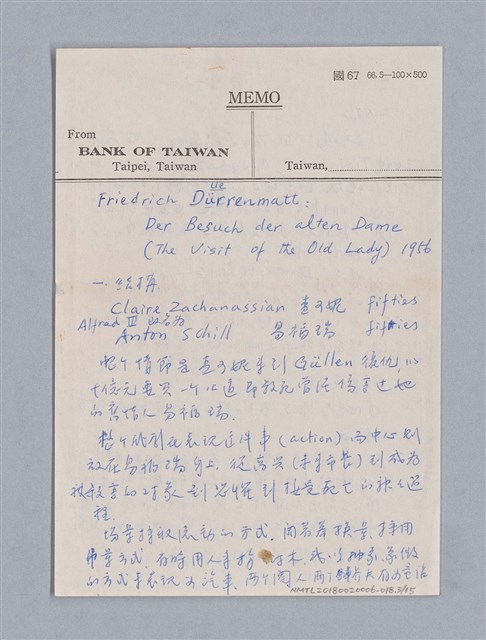 國 67 66.5—100×500
MEMO
From
BANK OF TAIWAN
Taipei, Taiwan
Taiwan,
ue
Friedrich Dürrenmatt:
Der Besuch der alten Dame
(The Visit of the Old Lady) 1956
一、
Claire Zachanassian 查可妮 fifties
Alfred Ill 改名為
Anton Schill 易柏瑞 fifties
整个情節是查可妮來到Güllen復仇,以
十億元要買一个公道即殺死曾經傷害过她
的舊情人易柏瑞.
整个代劇表現事件中(action)而中心則
放在易柏瑞身上,從高興(未來市長)到成為
被殺害的对象到恐懼到接受死亡的種種过
程.
場景採取流動的方式,閉幕換景,採用
吊景方式,有時用人手搭 樹木,或以抽象象徵
的方式來表現如汽車,两个閹人两个
NMTL20180020006-018.3/15